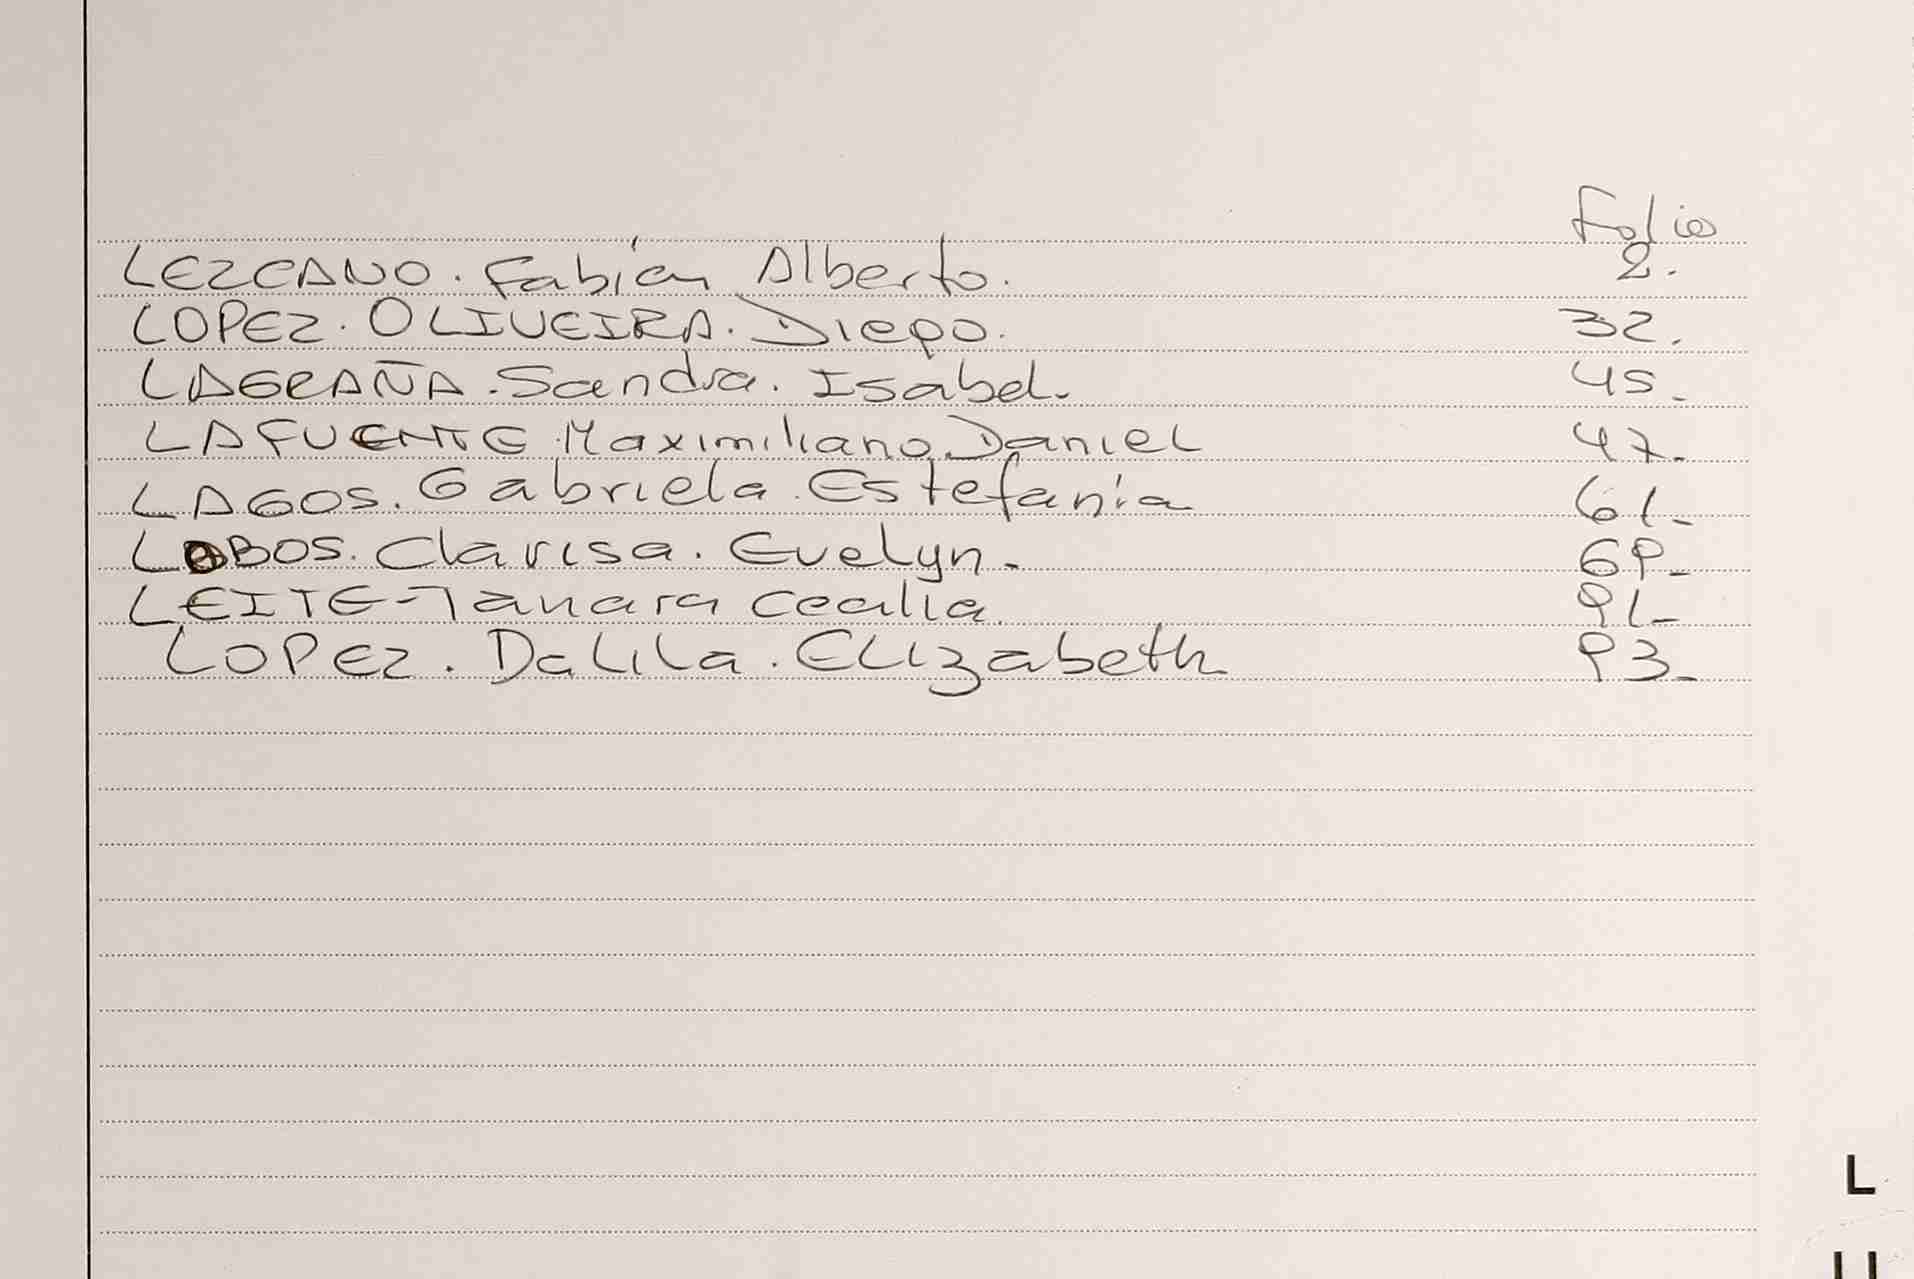 Folio
LEZCANO. Fabián Alberto. 2.
LOPEZ. OLIVEIRA. Diego. 32.
LAGRAÑA. Sandra. Isabel. 45.
LAFUENTE Maximiliano Daniel 47.
LAGOS. Gabriela Estefania 61-
LOBOS. Clarisa. Evelyn. 69-
LEITE-Tanara Cecilia. 91-
LOPEZ. Dalila. Elizabeth 93-
L